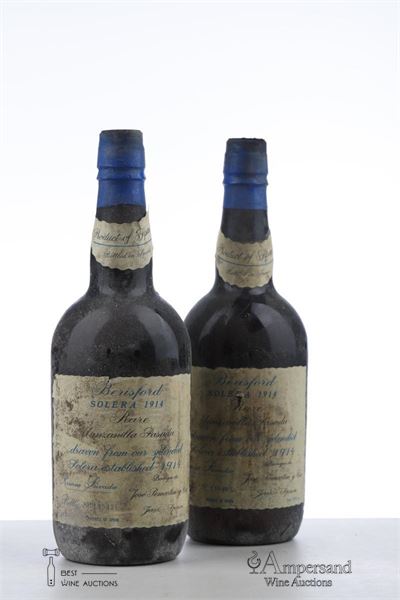 Product of Spain
Bottled in Spain
Berisford
SOLERA 1914
Rare
Manzanilla Pasada
drawn from our splendid
Solera established 1914
Bodegas de
Jose
Jerez Spain
Product of
Bottled in
Berisford
SOLERA 1914
Rare
Manzanilla Pasada
drawn from our splendid
Solera established 1914
Bodegas de
Jose
Jerez Spain
BEST
WINE AUCTIONS
Ampersand
Wine Auctions